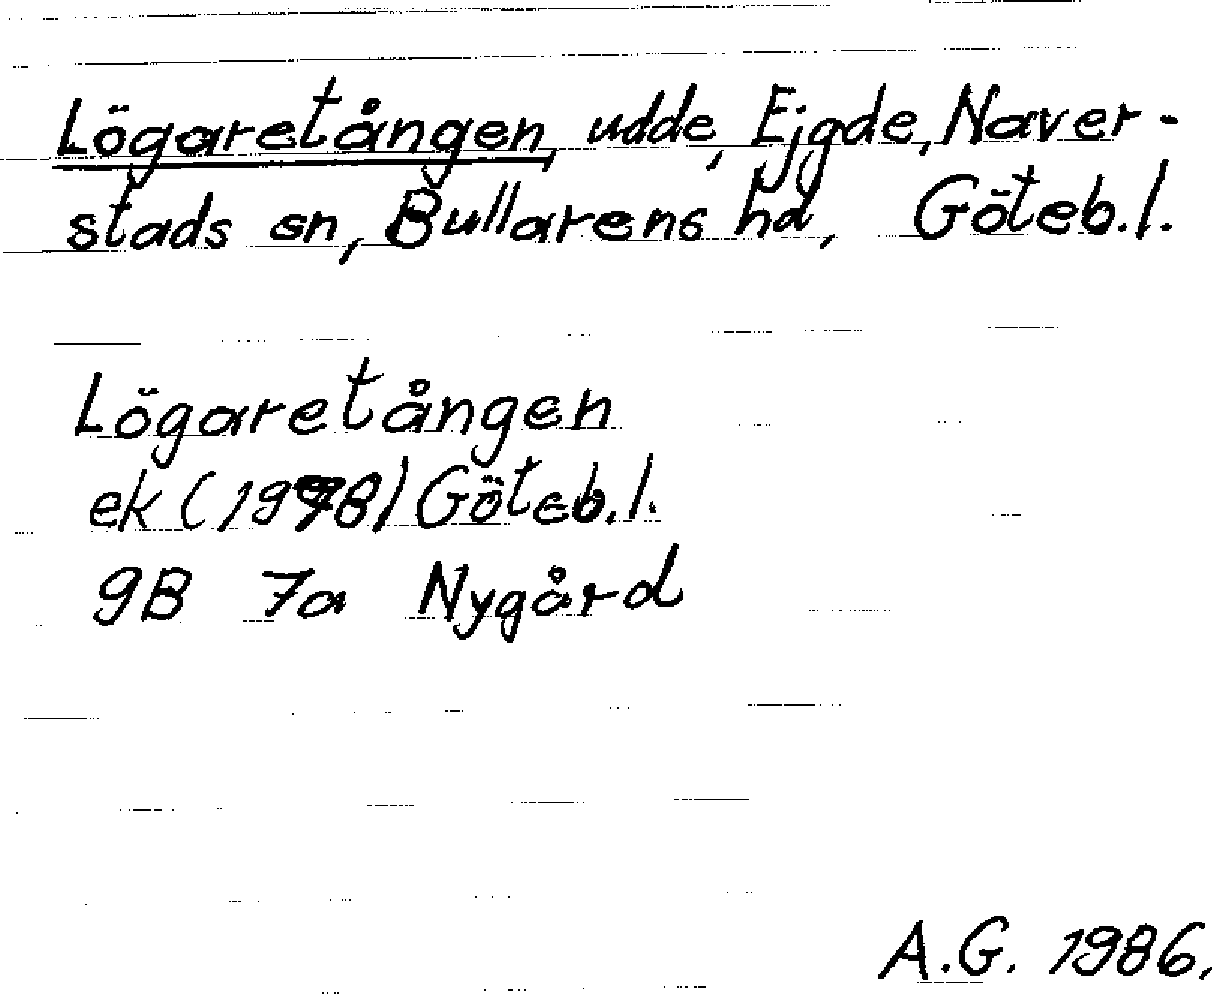 Lögaretången, udde, Ejgde, Naver-
stads sn, Bullarens hd, Göteb.l.
Lögaretången
ek (1978) Göteb.l.
9B 7a Nygård
A.G. 1986.